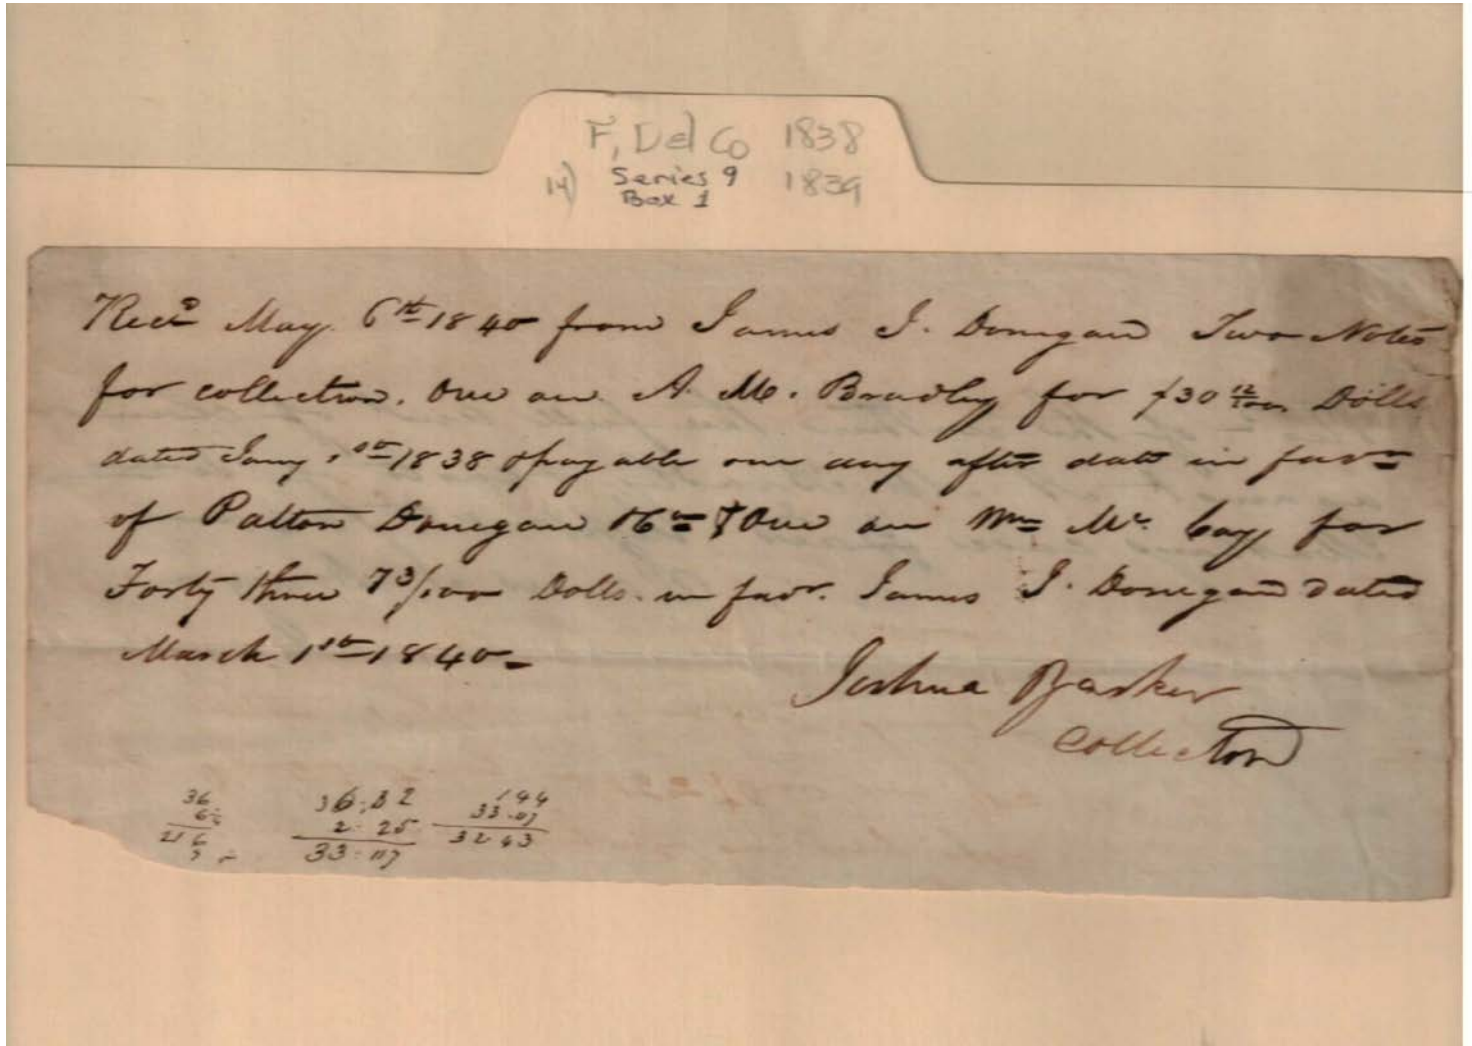 F, Del Co 1838
14) Series 9 1839
Box 1
Recd May 6th 1840 from James J. Donegan Two Notes
for collection. One on A. M. Bradley for $30 12/100 Dolls
dated Jany 1st 1838 & payable one day after date in favr
of Patton Donegan & Co & One on Wm Mc Cay for
Forty three 73/100 Dolls. in favr. James J. Donegan dated
March 1st 1840
Joshua Barker
Collector
36
216
2 25